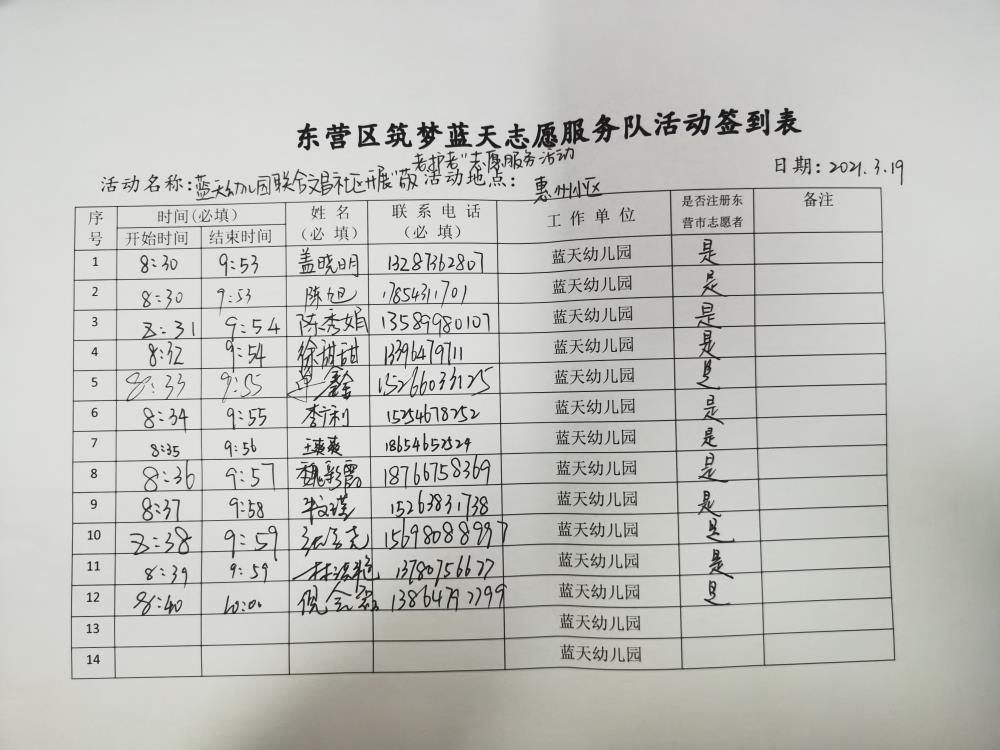 东营区筑梦蓝天志愿服务队活动签到表
老护老"志愿服务活动
活动名称:蓝天幼儿园联合文昌社区开展" 活动地点: 惠州小区 日期: 2021.3.19
序号 时间(必填) 姓名(必填) 联系电话(必填) 工作单位 是否注册东营市志愿者 备注
开始时间 结束时间
1 8:30 9:53 盖晓明 13287362807 蓝天幼儿园 是
2 8:30 9:53 陈旭 17854311701 蓝天幼儿园 是
3 8:31 9:54 陈秀娟 13589980107 蓝天幼儿园 是
4 8:32 9:54 徐甜甜 13396479711 蓝天幼儿园 是
5 8:33 9:55 单鑫 15266033125 蓝天幼儿园 是
6 8:34 9:55 李广利 15254678252 蓝天幼儿园 是
7 8:35 9:56 王爽爽 18654652524 蓝天幼儿园 是
8 8:36 9:57 魏彩霞 18766758369 蓝天幼儿园 是
9 8:37 9:58 牛文瑾 15263831738 蓝天幼儿园 是
10 8:38 9:59 15698088997 蓝天幼儿园 是
11 8:39 9:59 13780756677 蓝天幼儿园 是
12 8:40 10:00 13864792799 蓝天幼儿园 是
13 蓝天幼儿园
14 蓝天幼儿园